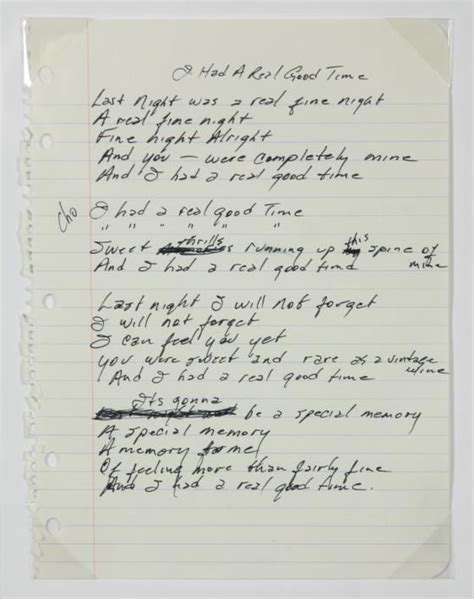 I Had A Real Good Time
Last Night was a real fine night
A real fine night
Fine night Alright
And you — were completely mine
And I had a real good time
Cho I had a real good Time
" " " " "
Sweet thrills running up this spine of mine
And I had a real good time
Last night I will not forget
I will not forget
I can feel you yet
you were sweet and rare as a vintage wine
And I had a real good time
Its gonna be a special memory
A special memory
A memory for me
Of feeling more than fairly fine
And I had a real good time.